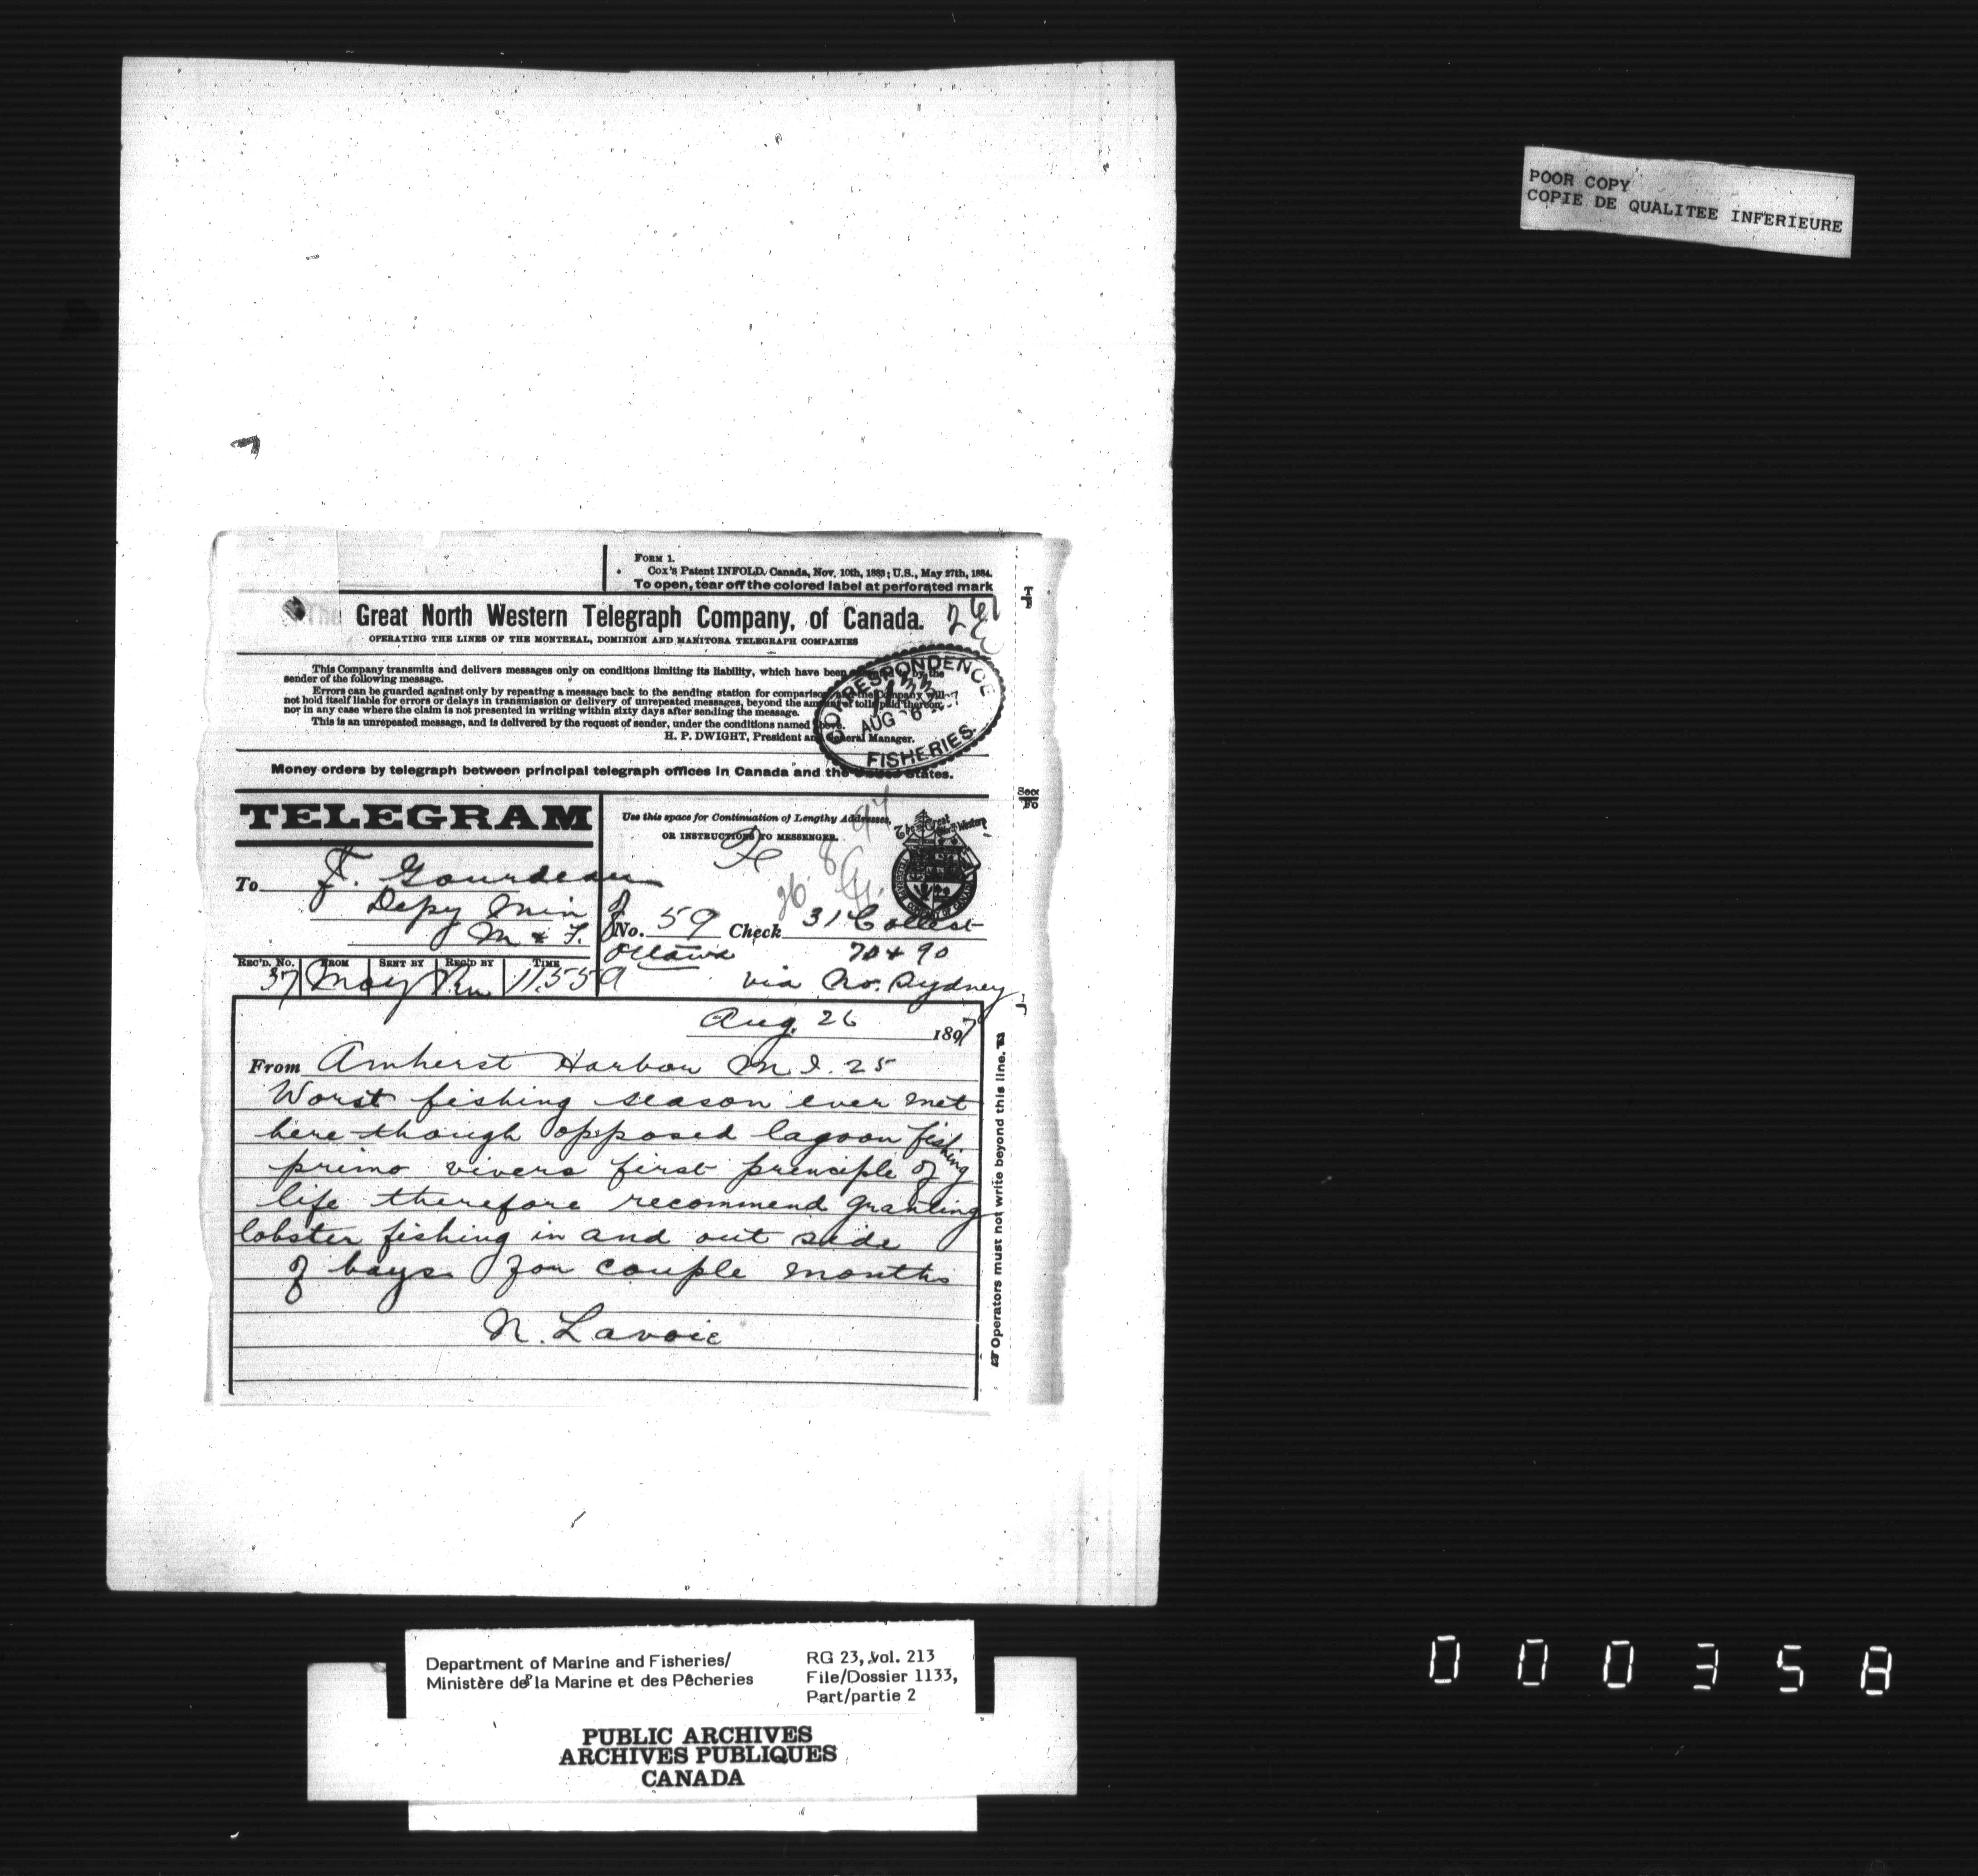 POOR COPY
COPIE DE QUALITEE INFERIEURE
FORM 1.
Cox's Patent INFOLD. Canada, Nov. 10th, 1883; U.S., May 27th, 1884.
To open, tear off the colored label at perforated mark
The Great North Western Telegraph Company, of Canada.
261
OPERATING THE LINES OF THE MONTREAL, DOMINION AND MANITOBA TELEGRAPH COMPANIES
This Company transmits and delivers messages only on conditions limiting its liability, which have been by the
sender of the following message.
Errors can be guarded against only by repeating a message back to the sending station for comparison, and the Company will
not hold itself liable for errors or delays in transmission or delivery of unrepeated messages, beyond the amount of tolls paid thereon,
nor in any case where the claim is not presented in writing within sixty days after sending the message.
This is an unrepeated message, and is delivered by the request of sender, under the conditions named above.
H. P. DWIGHT, President and General Manager.
CORRESPONDENCE
AUG 26
FISHERIES.
Money orders by telegraph between principal telegraph offices in Canada and the United States.
TELEGRAM
Use this space for Continuation of Lengthy Addresses,
OR INSTRUCTIONS TO MESSENGER.
26 8 97
To F. Gourdeau
Depy Min of
M & F.
No. 59 Check 31 Collect
Ottawa 70 + 90
REC'D. No. FROM SENT BY REC'D BY TIME
37 11.55 a
via No. Sydney
Aug. 26 1897
From Amherst Harbor M I. 25
Worst fishing season ever met
here though opposed lagoon fishing
primo vivers first principle of
life therefore recommend granting
lobster fishing in and out side
of bays for couple months
N. Lavoie
Operators must not write beyond this line.
Department of Marine and Fisheries/
Ministère de la Marine et des Pêcheries
RG 23, vol. 213
File/Dossier 1133,
Part/partie 2
PUBLIC ARCHIVES
ARCHIVES PUBLIQUES
CANADA
000358